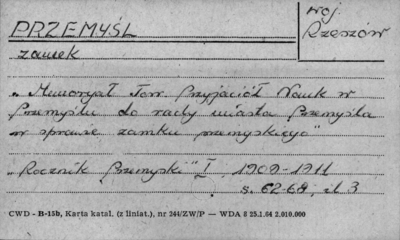 PRZEMYŚL
woj.
Rzeszów
zamek
„Memoryał Tow. Przyjaciół Nauk w
Przemyślu do rady miasta Przemyśla
w sprawie zamku przemyskiego"
„Rocznik Przemyski" I 1909-1911
s. 62-64, il 3
CWD - B-15b, Karta katal. (z liniat.), nr 244/ZW/P — WDA 8 25.1.64 2.010.000